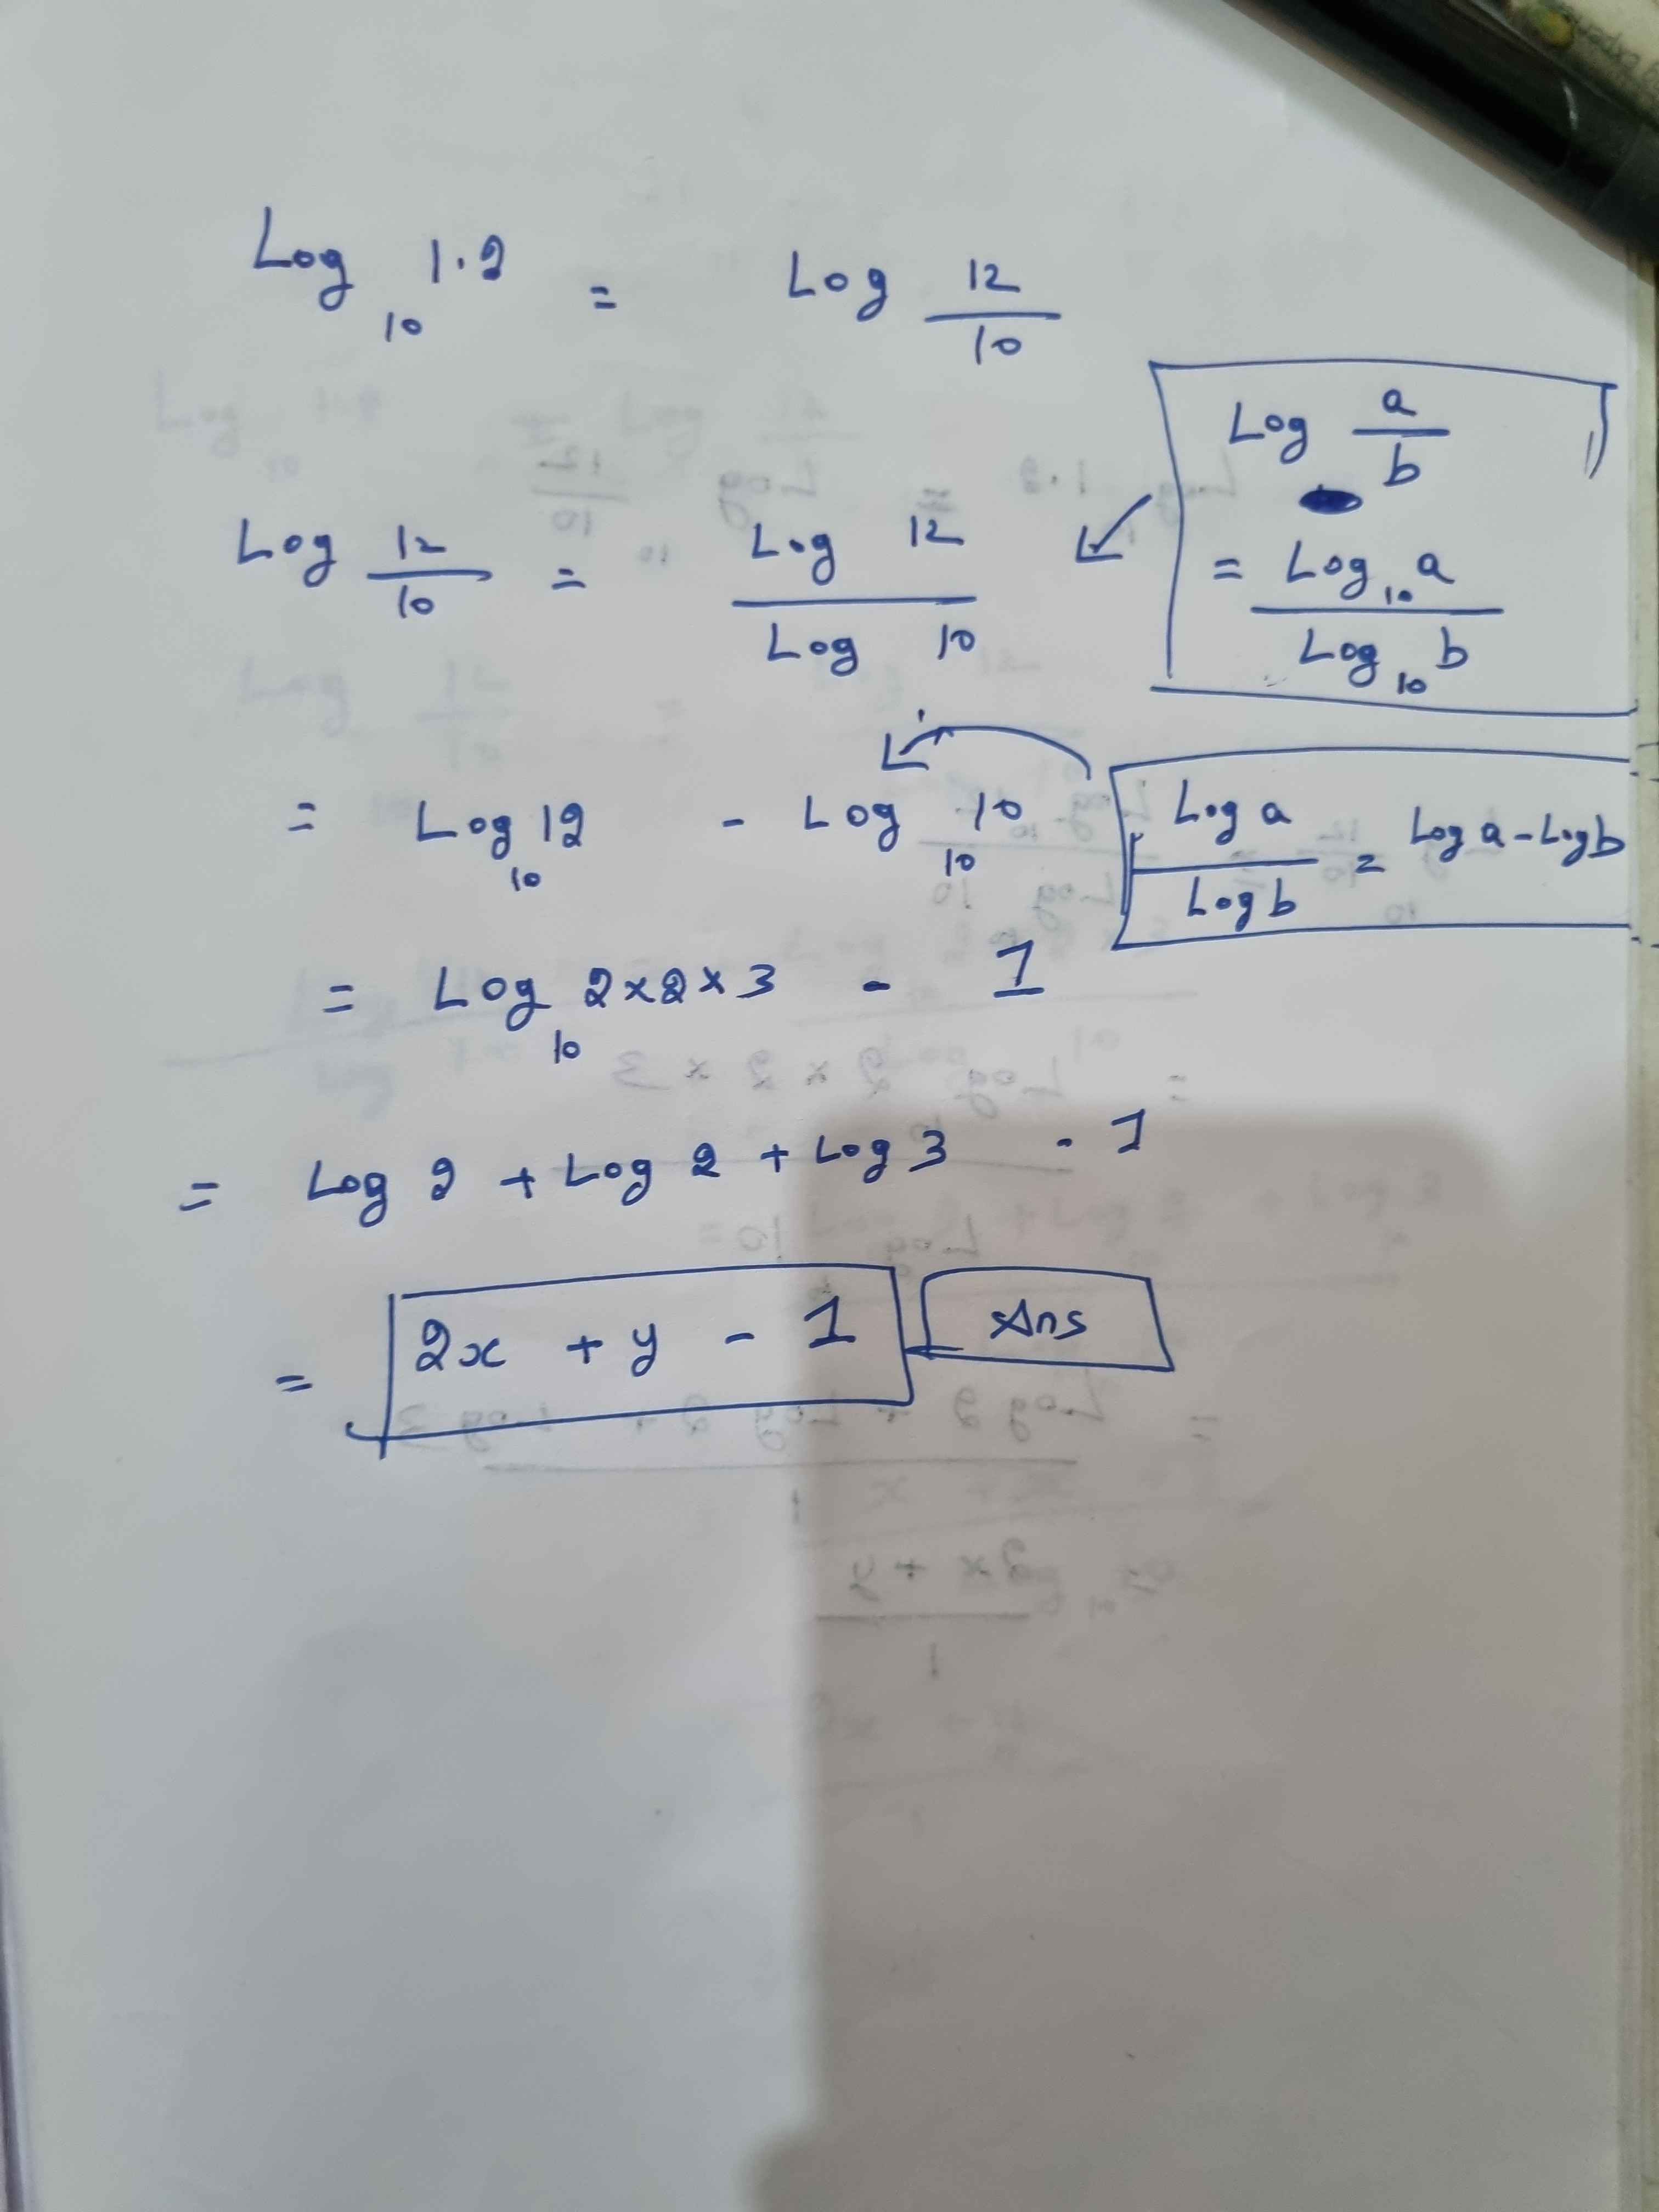 Log 10 1.2 = Log 12/10
Log a/b
= Log 10 a / Log 10 b
Log 12/10 = Log 12 / Log 10
= Log 10 12 - Log 10 10
Log a / Log b = Log a - Log b
= Log 10 2x2x3 - 1
= Log 2 + Log 2 + Log 3 - 1
= 2x + y - 1 Ans